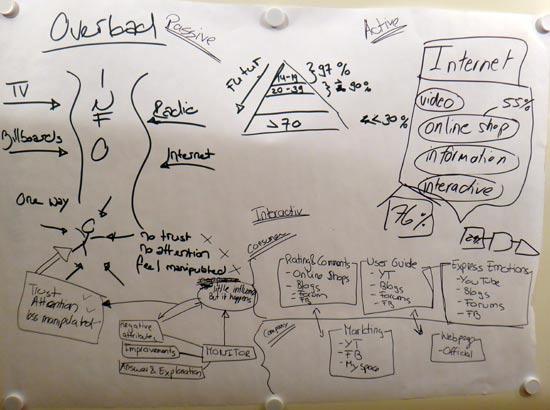 Overload
Passive
TV
Billboards
INFO
Radio
Internet
One way
no trust x
no attention x
feel manipulated x
Trust ✓
Attention ✓
less manipulated ✓
little influence
but it happens
negative
attributes
Improvements
Answer & Explanation
MONITOR
Futur
14-19
20-39
>70
97 %
90%
<30%
Active
Internet
video
55%
online shop
information
interactive
76%
Interactiv
Consumer
Rating & Comments
- Online Shops
- Blogs
- Forum
- FB
User Guide
- YT
- Blogs
- Forums
- FB
Express Emotions
- YouTube
- Blogs
- Forums
- FB
Company
Marketing
- YT
- FB
- Myspace
Webpage
- Official